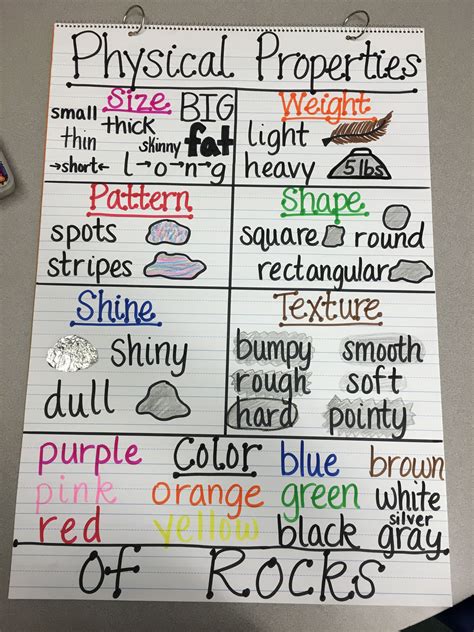 Physical Properties
Size
small thick BIG
thin skinny fat
→short← l→o→n→g
Weight
light
heavy 5 lbs
Pattern
spots
stripes
Shape
square round
rectangular
Shine
shiny
dull
Texture
bumpy smooth
rough soft
hard pointy
purple Color blue brown
pink orange green white
red yellow black silver gray
Of Rocks